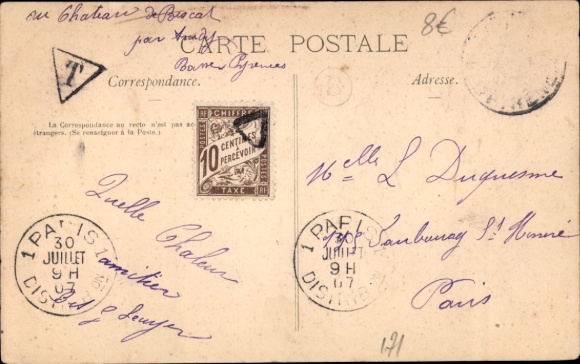 au Chateau de Boscat
par
Basses Pyrenees
8€
CARTE POSTALE
T
Correspondance.
Adresse.
B
La Correspondance au recto n'est pas ac
étrangers. (Se renseigner à la Poste.)
POSTES
CHIFFRE
10 CENTIMES
A PERCEVOIR
TAXE
RF
T
Quelle Chaleur
amitiés
1 PARIS 1
30
JUILLET
9 H
07
DISTRIB
Melle L Duquesme
Faubourg St Honoré
Paris
1 PARIS 1
30
JUILLET
9 H
07
DISTRIB
171